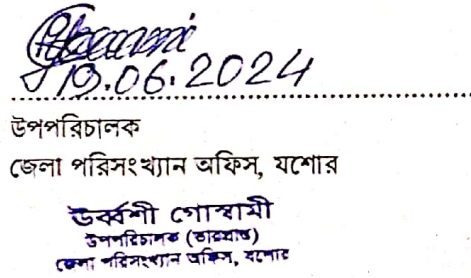 19.06.2024
উপপরিচালক
জেলা পরিসংখ্যান অফিস, যশোর
উর্বশী গোস্বামী
উপপরিচালক (ভারপ্রাপ্ত)
জেলা পরিসংখ্যান অফিস, যশোর